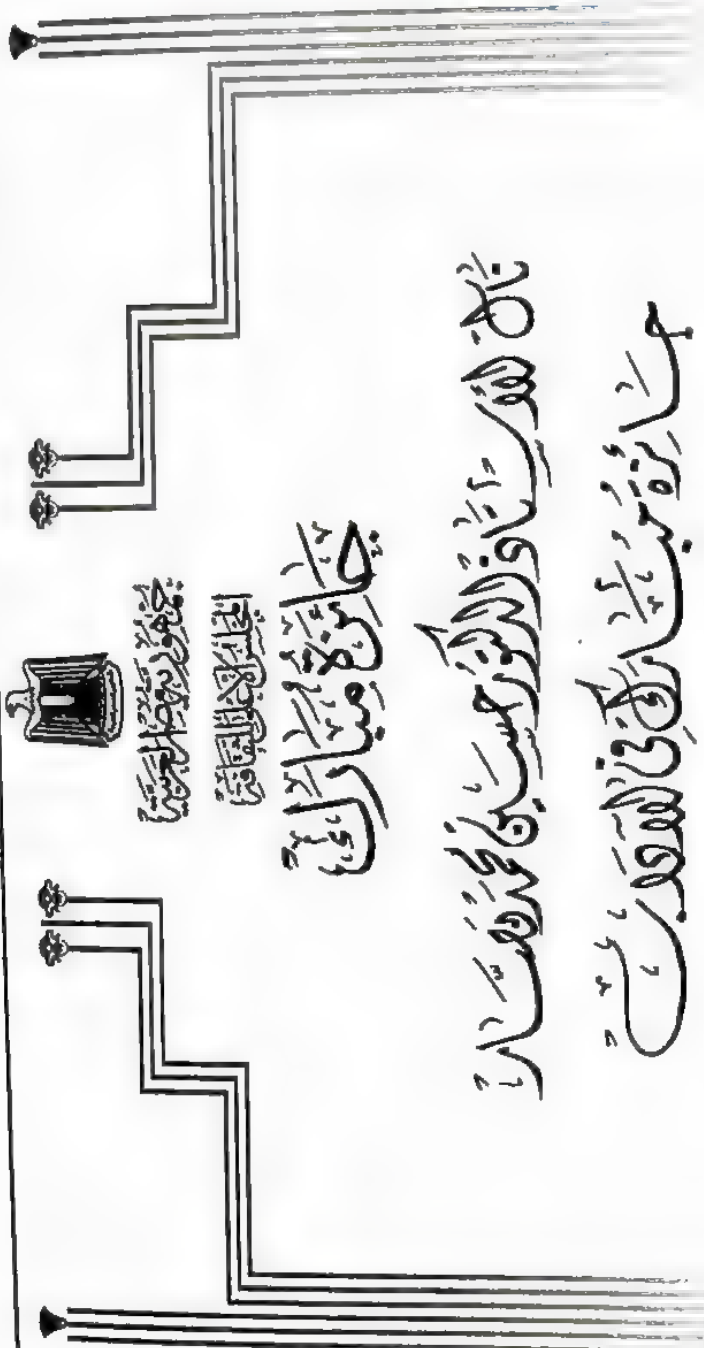 جمهورية مصر العربية
المجلس الأعلى للثقافة
جائزة مبارك
نال الأستاذ الدكتور حسين محمد نصار
جائزة مبارك في الآداب